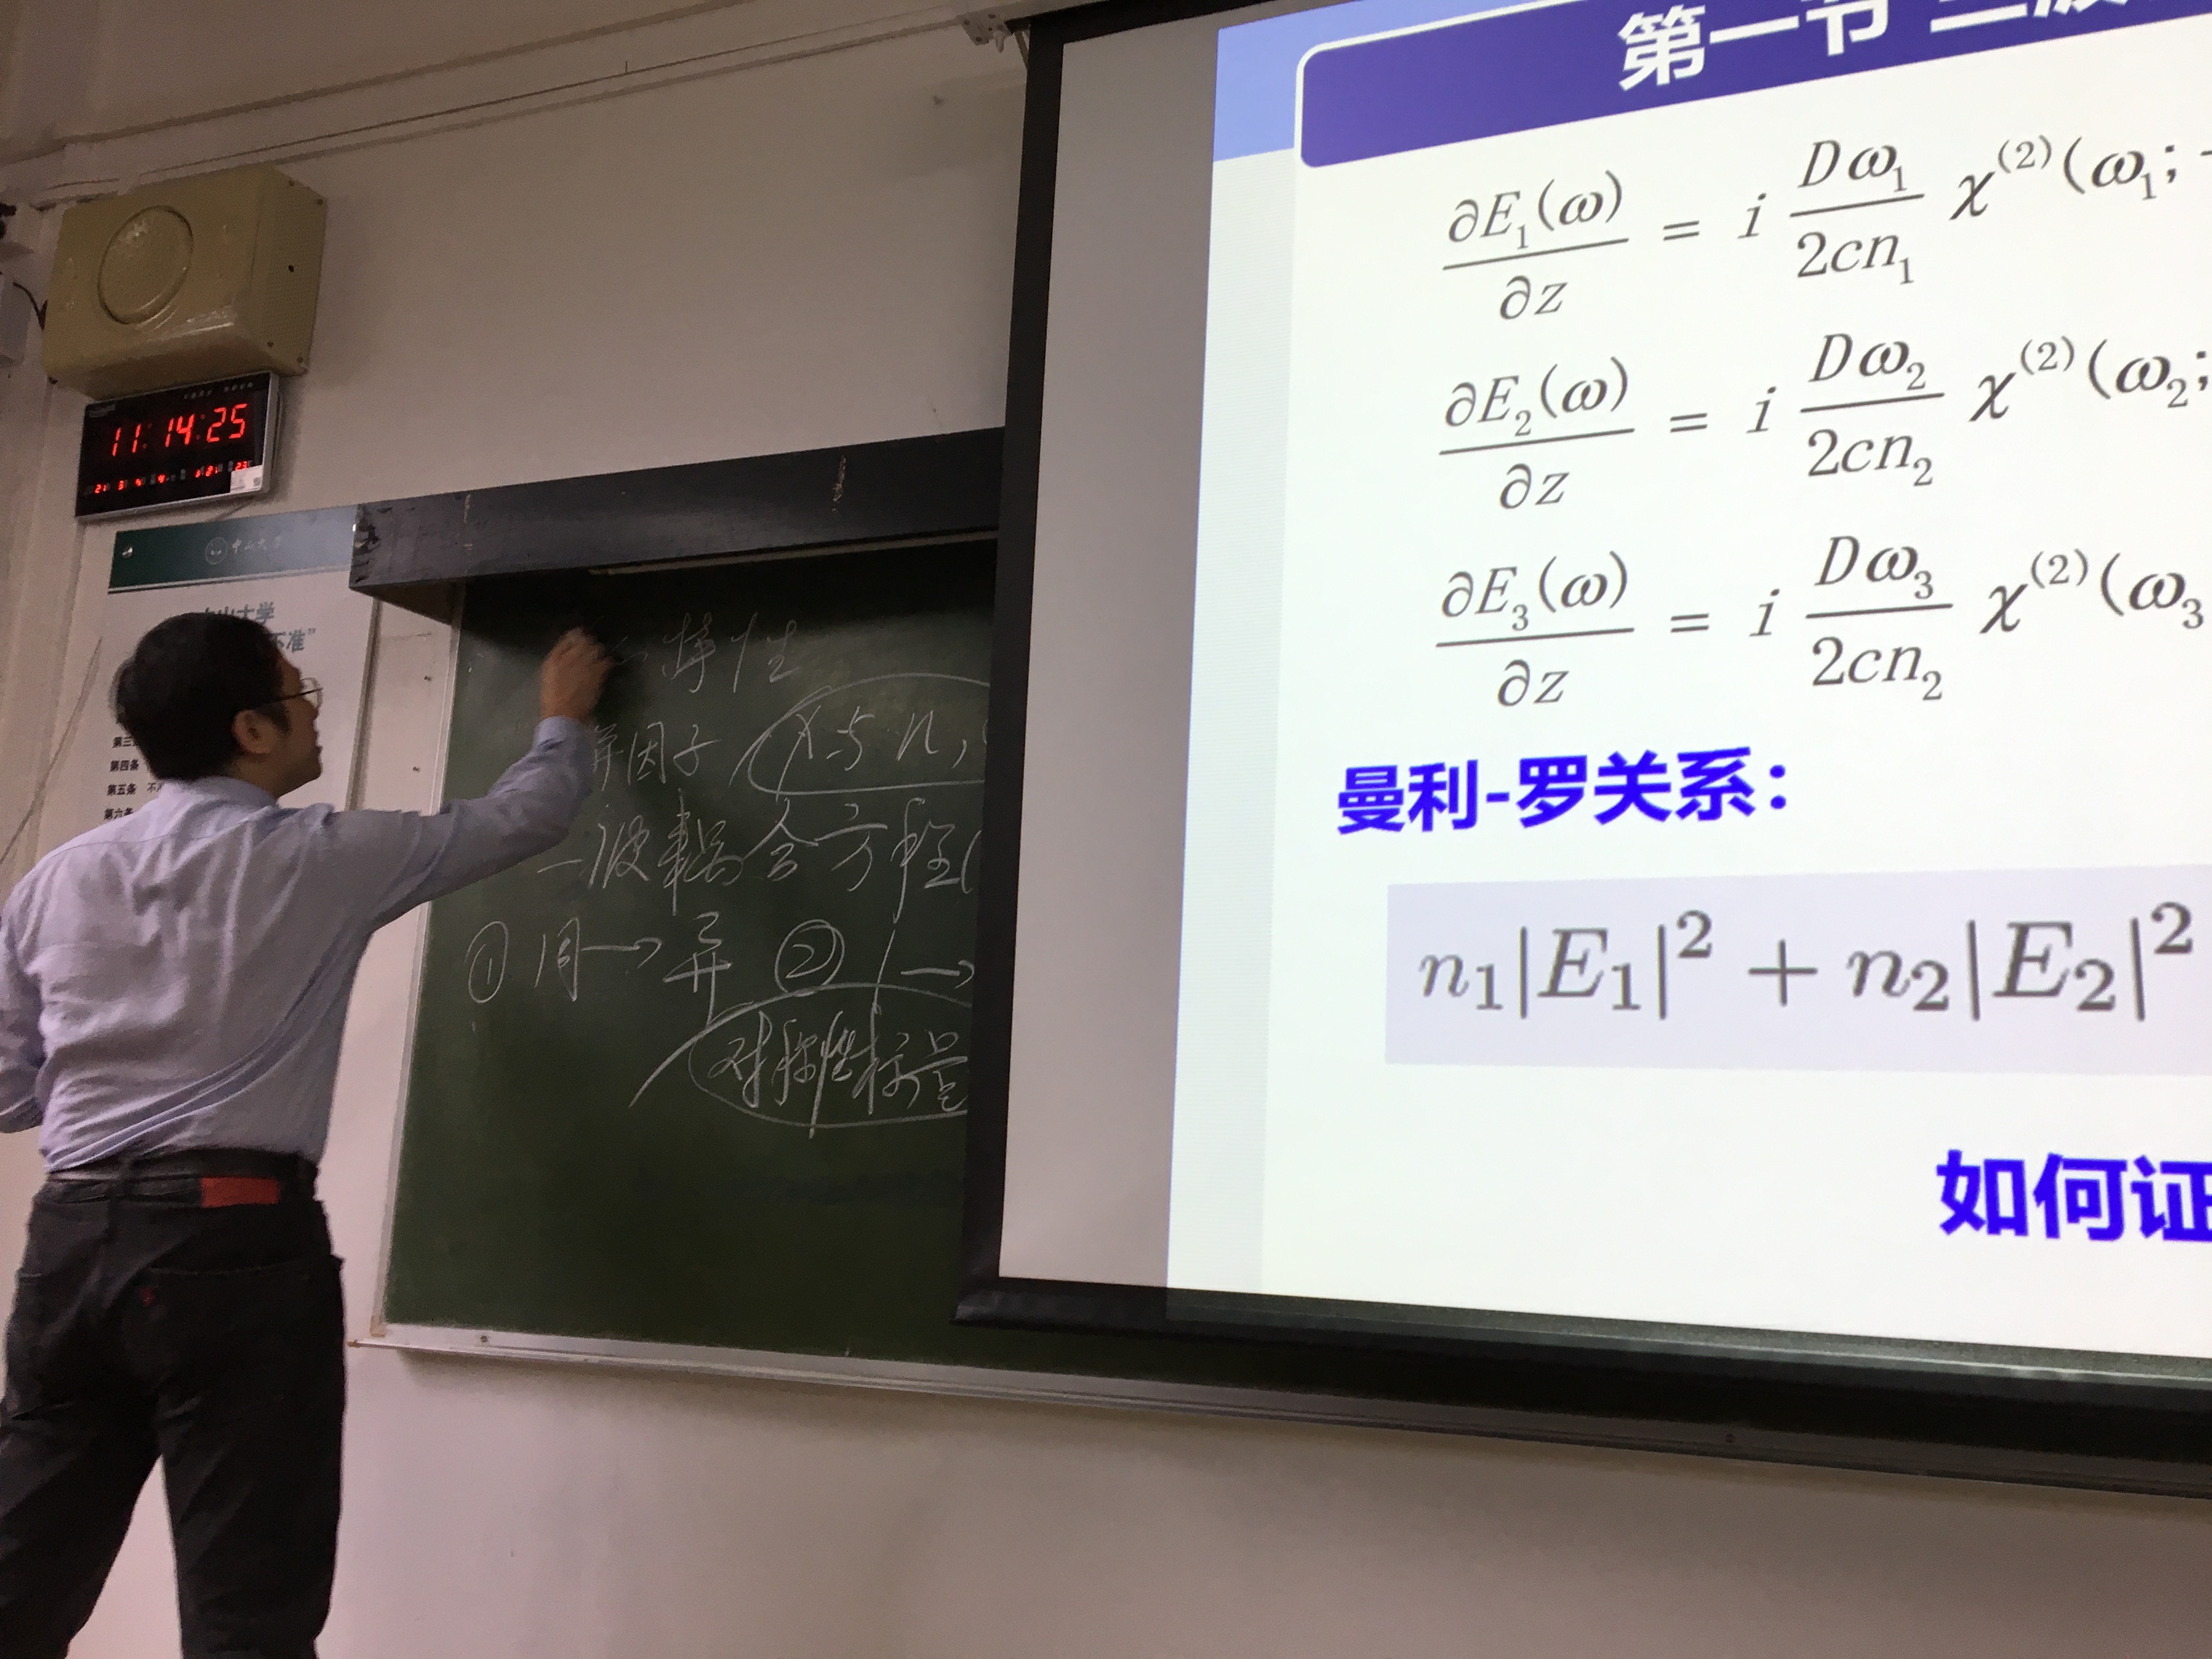 11:14:25
中山大学
中山大学
不准”
第三
第四条
第五条 不
第六条
特性
因子 χ与 n,
波耦合方程(
① 同→异 ② 1→
对称性 标量
第一节 三波
∂E₁(ω)/∂z = i Dω₁/2cn₁ χ⁽²⁾(ω₁; -
∂E₂(ω)/∂z = i Dω₂/2cn₂ χ⁽²⁾(ω₂;
∂E₃(ω)/∂z = i Dω₃/2cn₂ χ⁽²⁾(ω₃
曼利-罗关系：
n₁|E₁|² + n₂|E₂|²
如何证